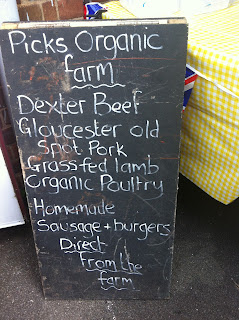 Picks Organic
farm
Dexter Beef
Gloucester old
Spot Pork
Grassfed lamb
Organic Poultry
Homemade
Sausage + burgers
Direct
from the
farm